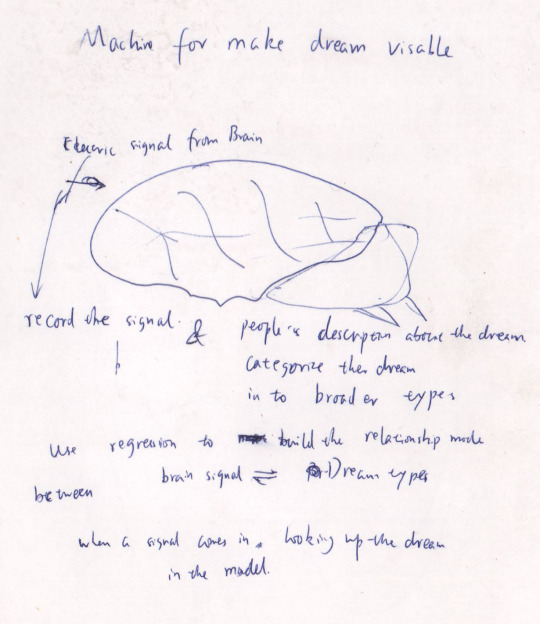 Machine for make dream visable
Electric signal from Brain
record the signal. & people's descripton about the dream
Categorize the dream
in to broader types
Use regression to build the relationship mode
between brain signal ⇌ Dream types
when a signal comes in, looking up the dream
in the model.